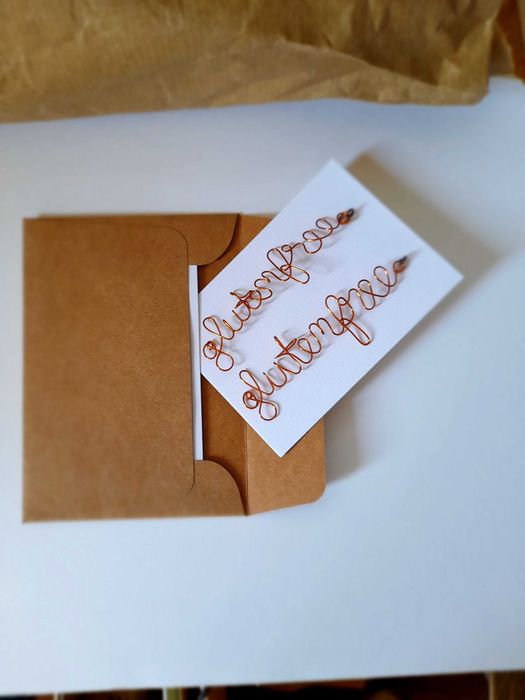 glutenfree
glutenfree